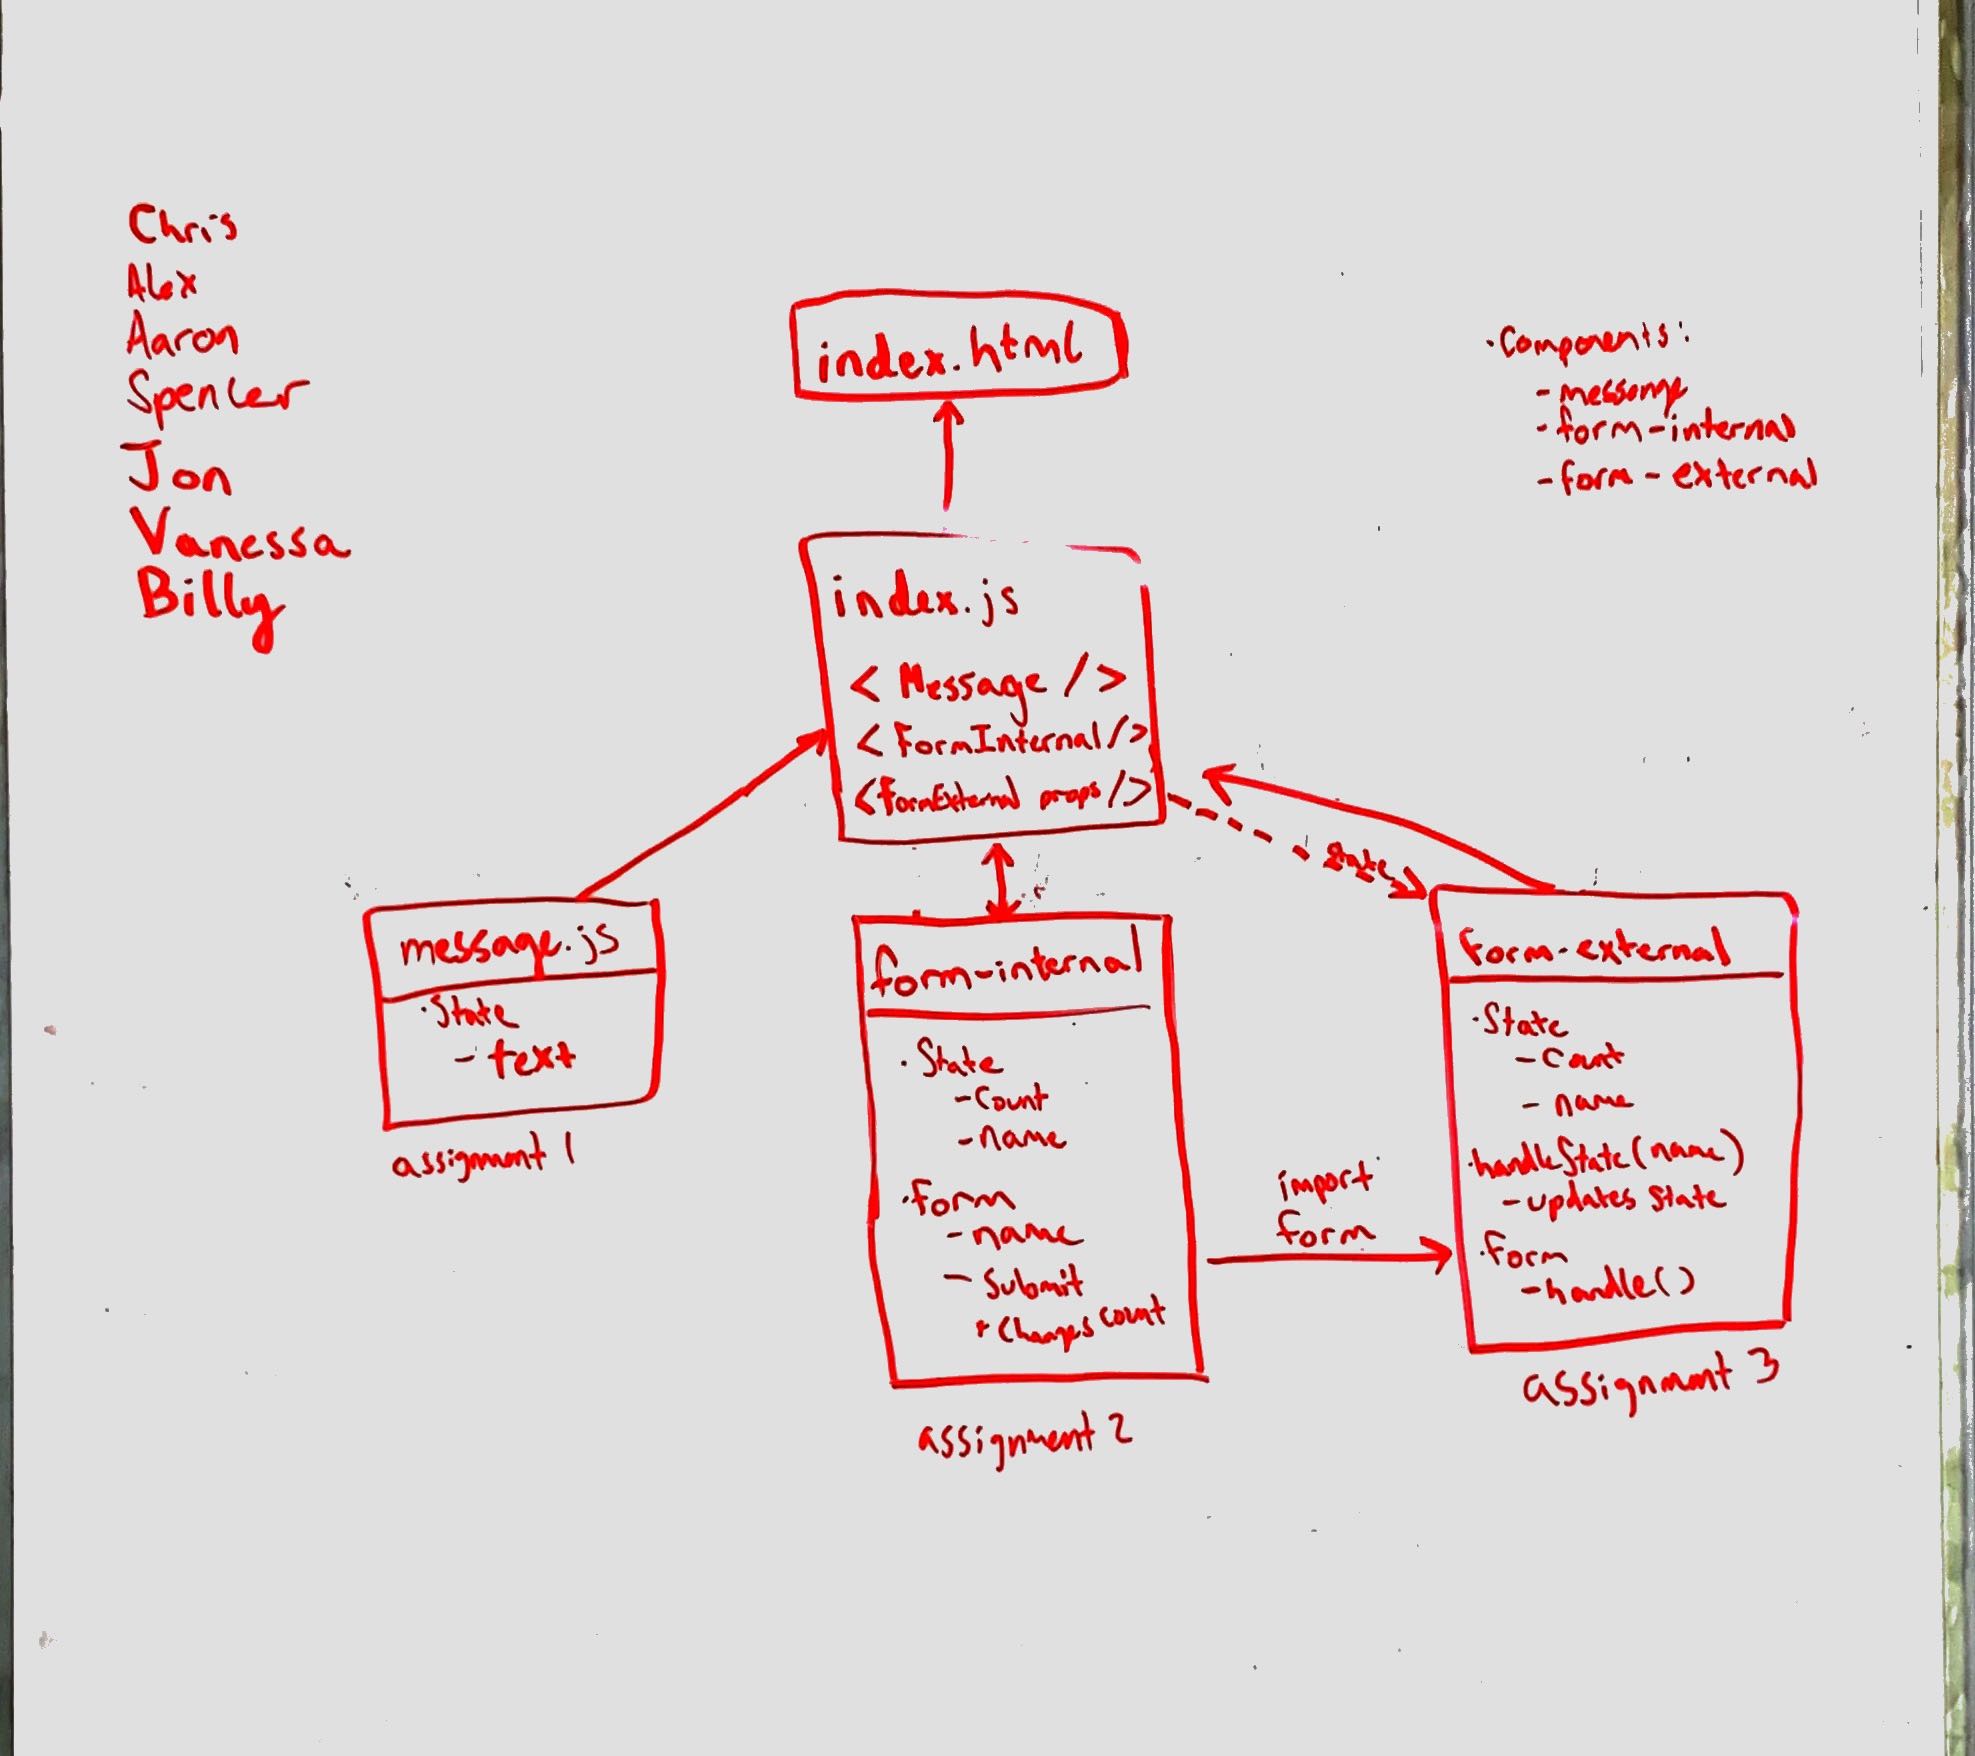 Chris
Alex
Aaron
Spencer
Jon
Vanessa
Billy
index.html
·Components:
- message
- form-internal
- form-external
index.js
< Message />
< FormInternal/>
<FormExternal props/>
state
message.js
·State
- text
assignment 1
form-internal
·State
- Count
- name
·form
- name
- Submit
+ Changes count
assignment 2
import
form
form-external
·State
- Count
- name
·handleState(name)
- updates state
·form
- handle()
assignment 3